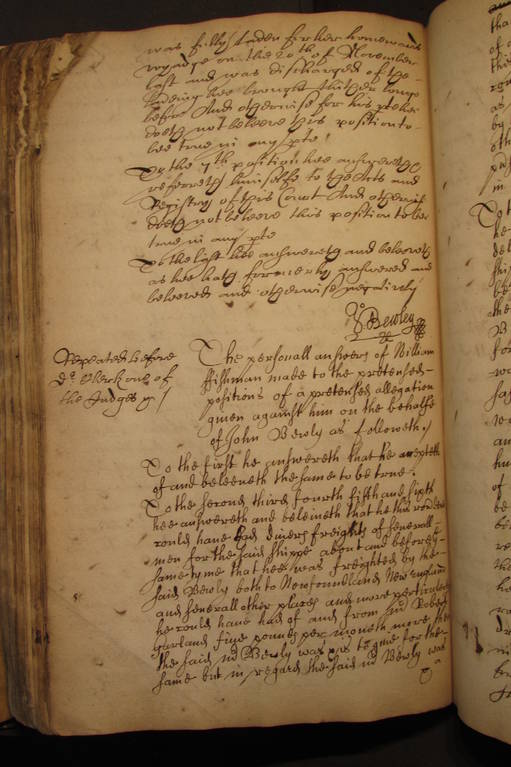 was fully laden for her homewards
voyage on the 20th of November
last and was discharged of the
lading hee brought the tyme
before And otherwise for his
doeth not beleeve this position to
bee true in any pte /
To the 7th position hee answereth
referreth himselfe to the Acts and
Registry of this Court And otherwise
doeth not beleeve this position to bee
true in any pte
To the last hee answereth and beleeveth
as hee hath formerly answered and
beleeved and otherwise negatively /
Jo: Bewley
Repeated before
Dr Clerk one of
the Judges /
The personall answers of William
Fishman made to the pretensed
positions of a pretensed allegation
given against him on the behalfe
of John Bewly as followeth /
To the first he answereth that he
of and beleeveth the same to be true /
To the second third fourth fifth and sixth
hee answereth and beleiveth that he this rondent
could have had divers freights of severall
men for the said shippe about and before the
same tyme that hee was freighted by the
said Bewly both to Newfoundland, New England
and severall other places and more perticularly
he could have had of and from mr Robert
Garland five pounds per moneth more then
the said mr Bewly was to give for the
same but in regard the said mr Bewly was
a